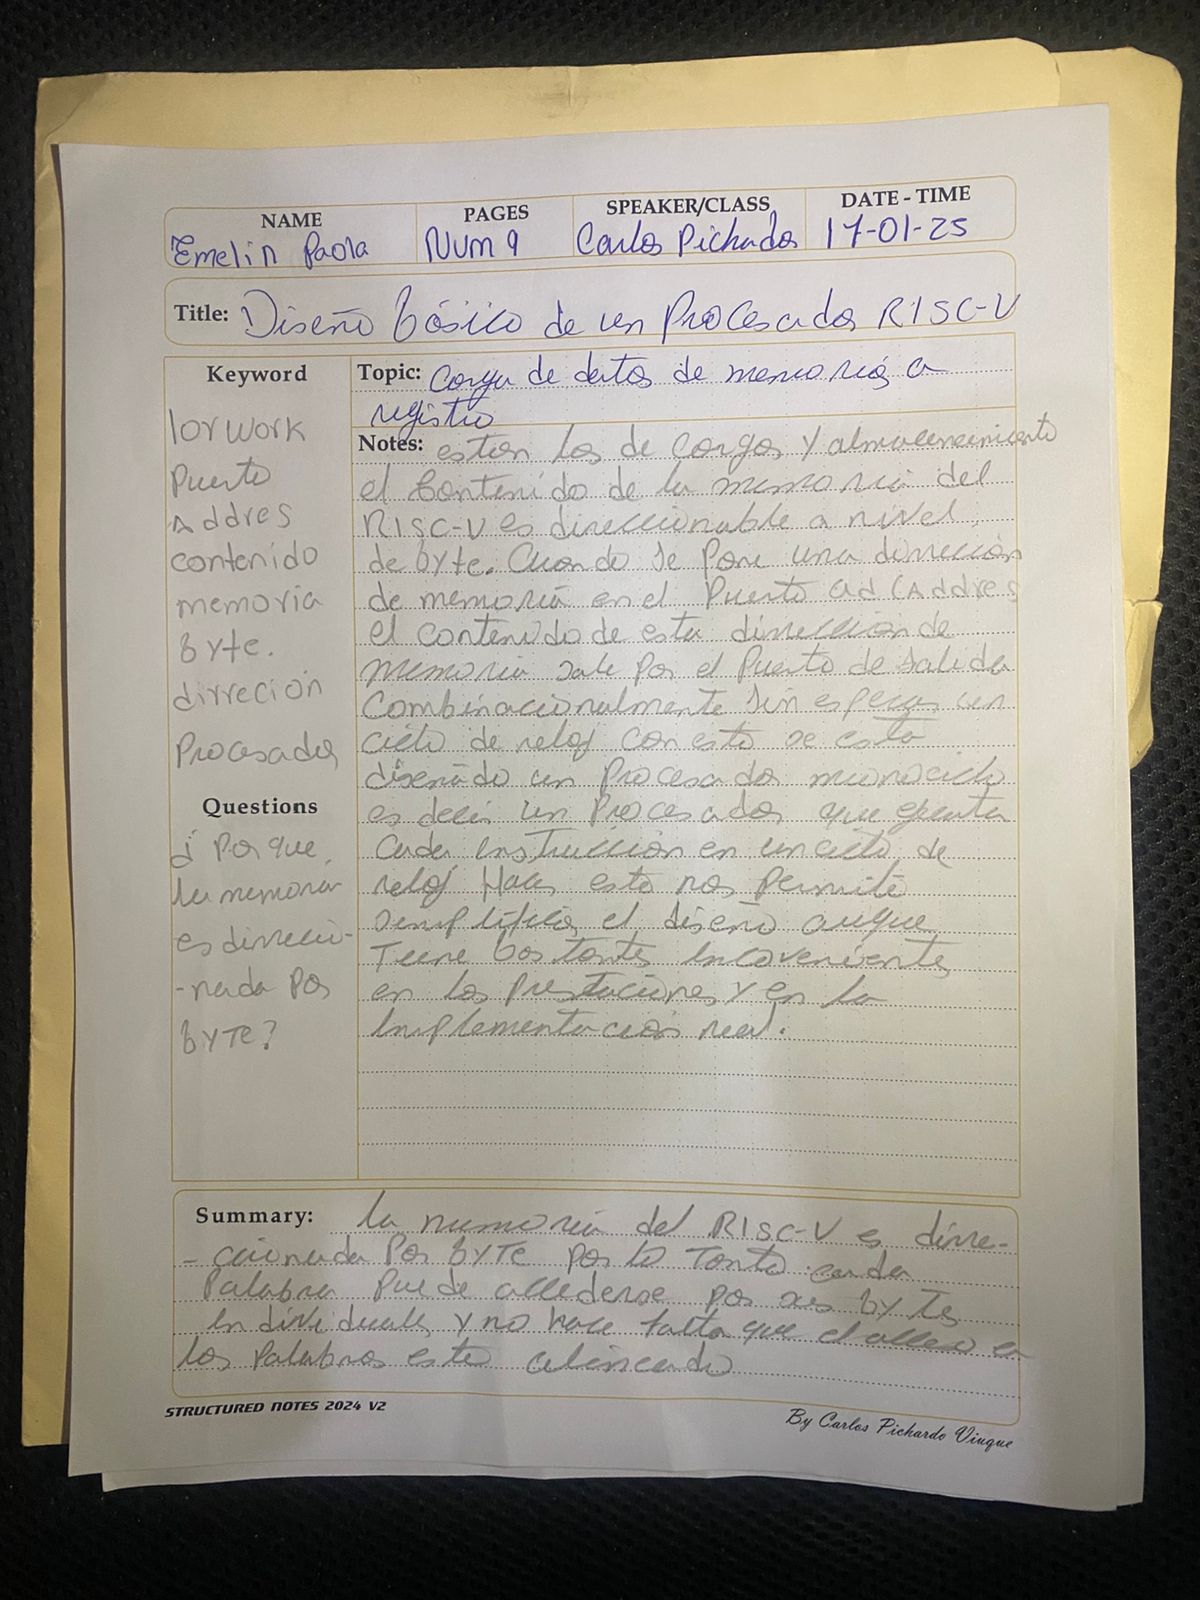 NAME PAGES SPEAKER/CLASS DATE - TIME
Emelin Paola Num 9 Carlos Pichados 17-01-25
Title: Diseño básico de un Procesador RISC-V
Keyword
lorwork
Puerto
Addres
contenido
memoria
byte.
dirreción
Procesador
Questions
¿ Por que
la memoria
es direccio-
-nada por
byte?
Topic: Carga de datos de memoria a
registro
Notes: estan los de cargas y almacenamiento
el contenido de la memoria del
RISC-V es direccionable a nivel
de byte. Cuando se pone una dirección
de memoria en el Puerto ad (Addres
el contenido de esta dirrección de
memoria sale por el Puerto de salida
Combinacionalmente sin esperar un
ciclo de reloj con esto se esta
diseñado un Procesador monociclo
es decir un Procesador que ejecuta
cada instrucción en un ciclo de
reloj Hacer esto nos permite
simplificar el diseño auque
Tiene bastantes incovenientes
en las Prestaciones y en la
Implementación real.
Summary: la memoria del RISC-V es dirre-
-cionada Por byte por lo Tanto cada
Palabra Puede accederse por sus bytes
individuales y no hace falta que el acceso a
las Palabras este alineado
STRUCTURED NOTES 2024 V2
By Carlos Pichardo Viuque